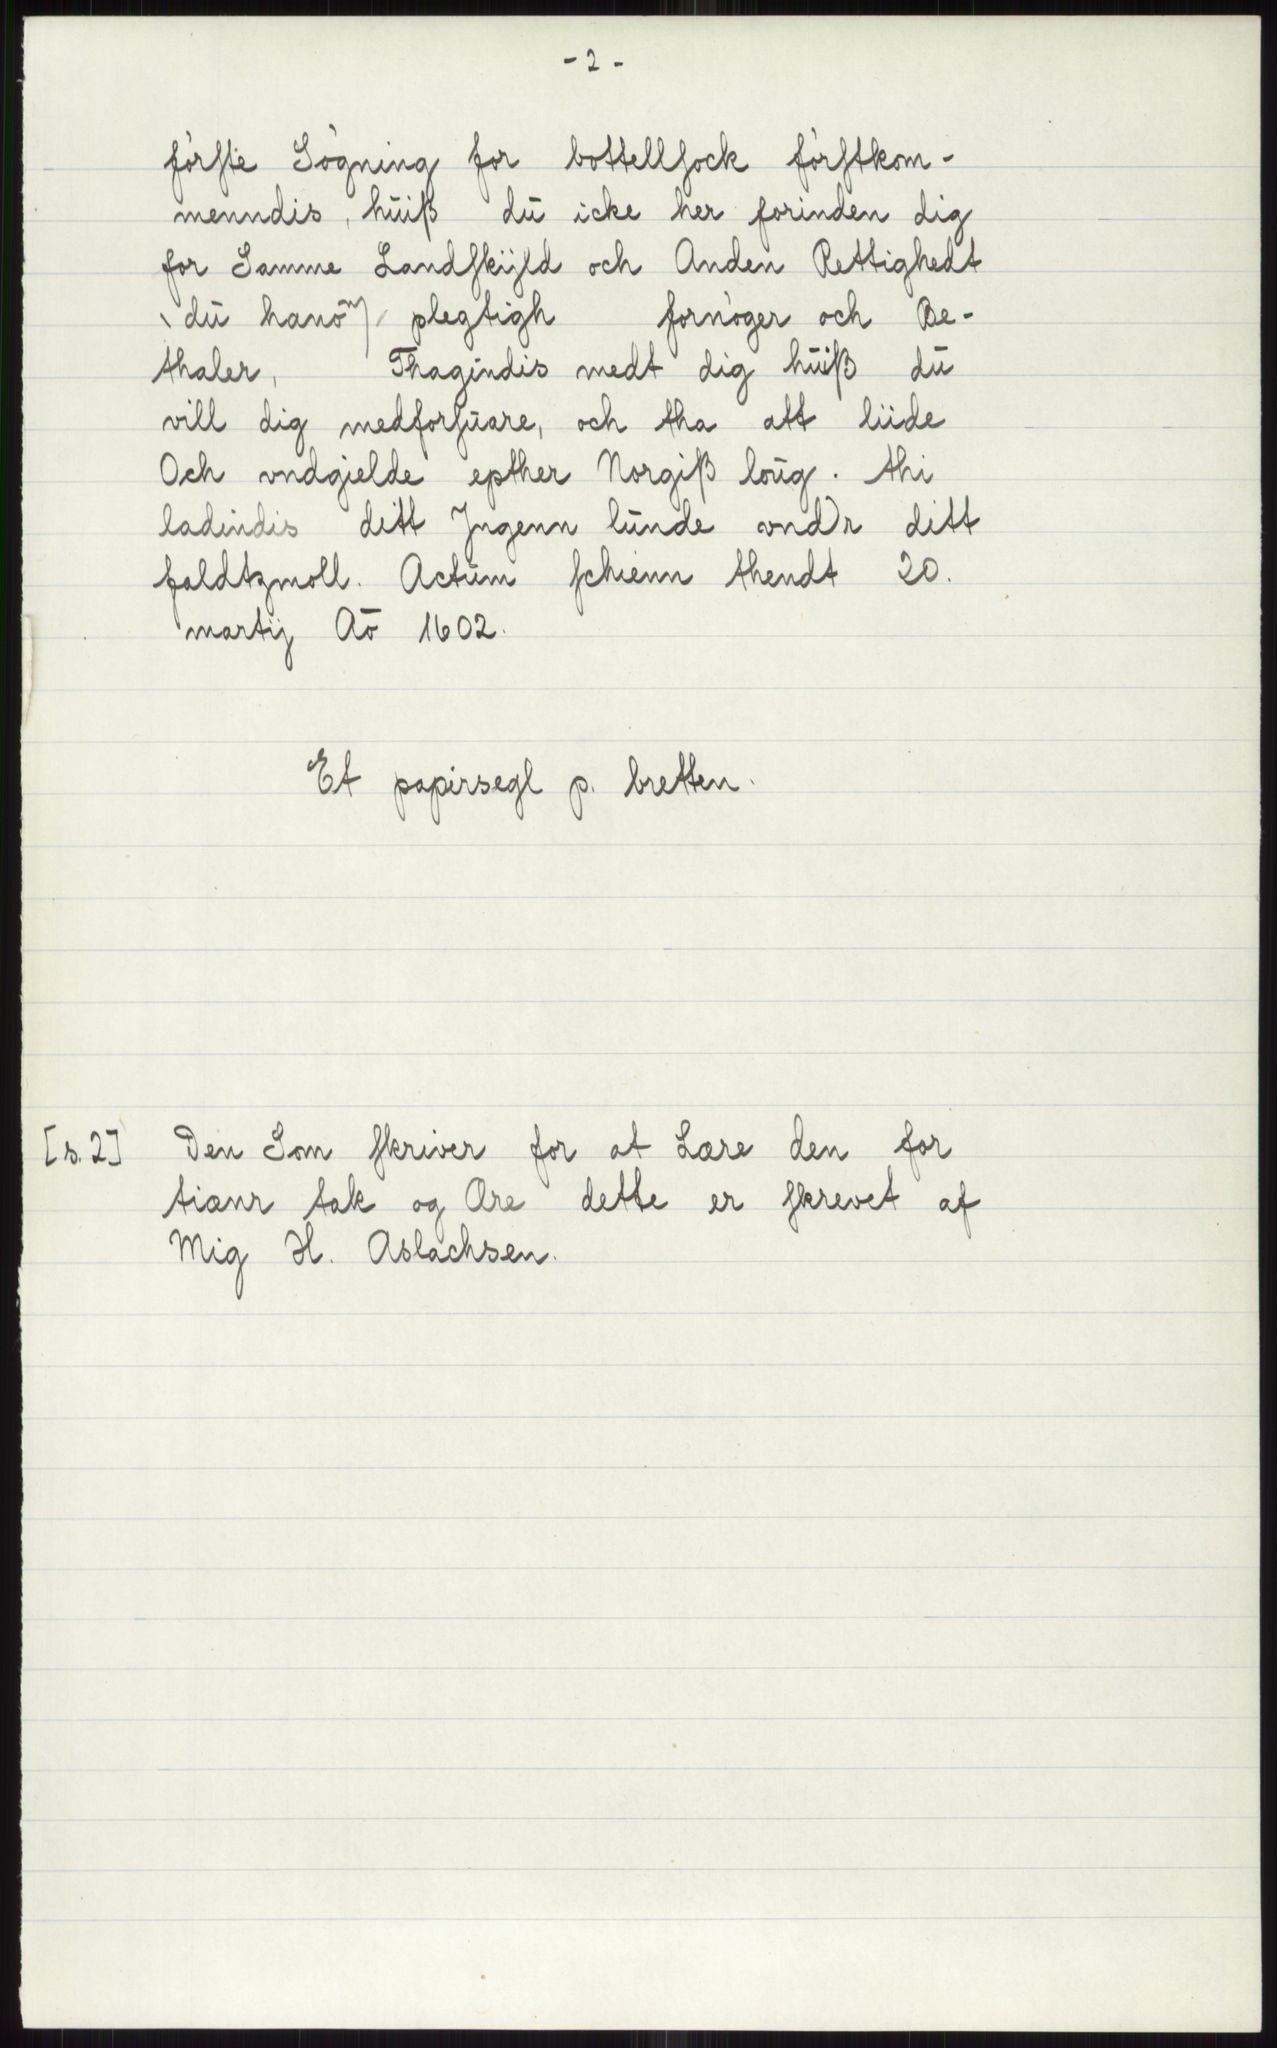 - 2 -
førſte Søgning for bottellſock førſtkom-
menndis, hūiß dū icke her forinden dig
for Samme Landſkÿld och Anden Rettighedt
\ dū hanōm / plegtigh fornøger och Be-
thaler, Thagindis medt dig hūiß dū
vill dig medforſūare, och tha att liide
Och vndgielde epther Norgiß loūg. thi
ladindis ditt Jngenn lūnde vndr ditt
faldtzmoll. Actūm ſchienn thendt 20.
martij Aō 1602.
Et papirsegl p. bretten.
[s. 2] Den Som ſkriver for at Lære den for
tiænr tak og Ære dette er ſkrevet af
Mig H. Aslachsen.